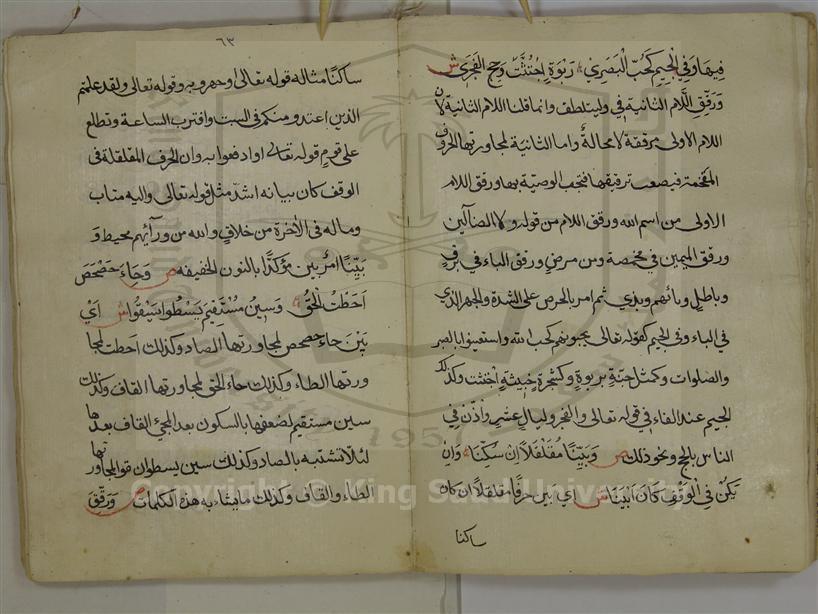 فيها وفي الجيم كحب البصري ربوة اجتثت وحج الفجر ش
ورقق اللام الثانية في وليتلطف وانما قلنا اللام الثانية لان
اللام الاولى مرققة لا محالة واما الثانية لمجاورتها الحروف
المفخمة فيصعب ترقيقها فتجب الوصية بها ورقق اللام
الاولى من اسم الله ورقق اللام من قوله ولا الضالين
ورقق الميمين في مخمصة ومن مرض ورقق الباء في برق
وباطل وبهم وبذي ثم امر بالحرص على الشدة والجهر الذي
في الباء وفي الجيم كقوله تعالى يحبونهم كحب الله واستعينوا بالصبر
والصلوات وكمثل جنة بربوة وكشجرة خبيثة اجتثت وكذلك
الجيم عند الفاء في قوله تعالى والفجر وليال عشر واذن في
الناس بالحج ونحو ذلك ص وبينا مقلقلا ان سكنا وان
يكن في الوقف كان ابينا ش اي بين حرفا مقلقلا ان كان
ساكنا
٦٣
ساكنا مثاله قوله تعالى وقوله تعالى ولقد علمتم
الذين اعتدوا منكم في السبت واقترب الساعة وتطلع
على قوم قوله تعالى او ادفعوا به وان الحرف المقلقلة في
الوقف كان بيانه اشد مثل قوله تعالى واليه متاب
وماله في الآخرة من خلاق والله من ورآئهم محيط و
بينا امر بين مؤكدا بالنون الخفيفة ص وحاء حصحص
احطت الحق وسين مستقيم يسطوا يسقوا ش اي
بين حاء حصحص لمجاورتها الصاد وكذلك احطت لمجا
ورتها الطاء وكذلك حاء الحق لمجاورتها القاف وكذلك
سين مستقيم لضعفها بالسكون بعد المجئ القاف بعدها
لئلا تشتبه بالصاد وكذلك سين يسطون قوا لمجاورتها
الطاء والقاف وكذلك ما يشابه هذه الكلمات ص ورقق
Copyright © King Saud University
1957